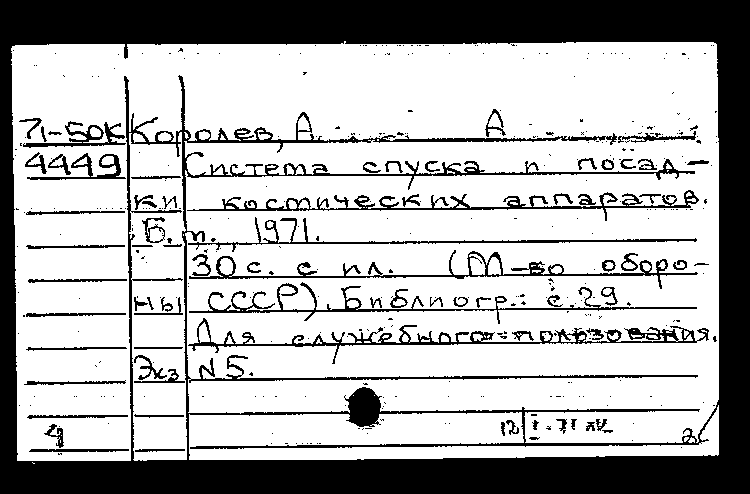 71-50К Королев, А. А
4449 Система спуска и посад-
ки космических аппаратов.
Б. м., 1971.
30 с. с ил. (М-во оборо-
ны СССР). Библиогр.: с. 29.
Для служебного пользования.
Экз N5.
4 12 I-71